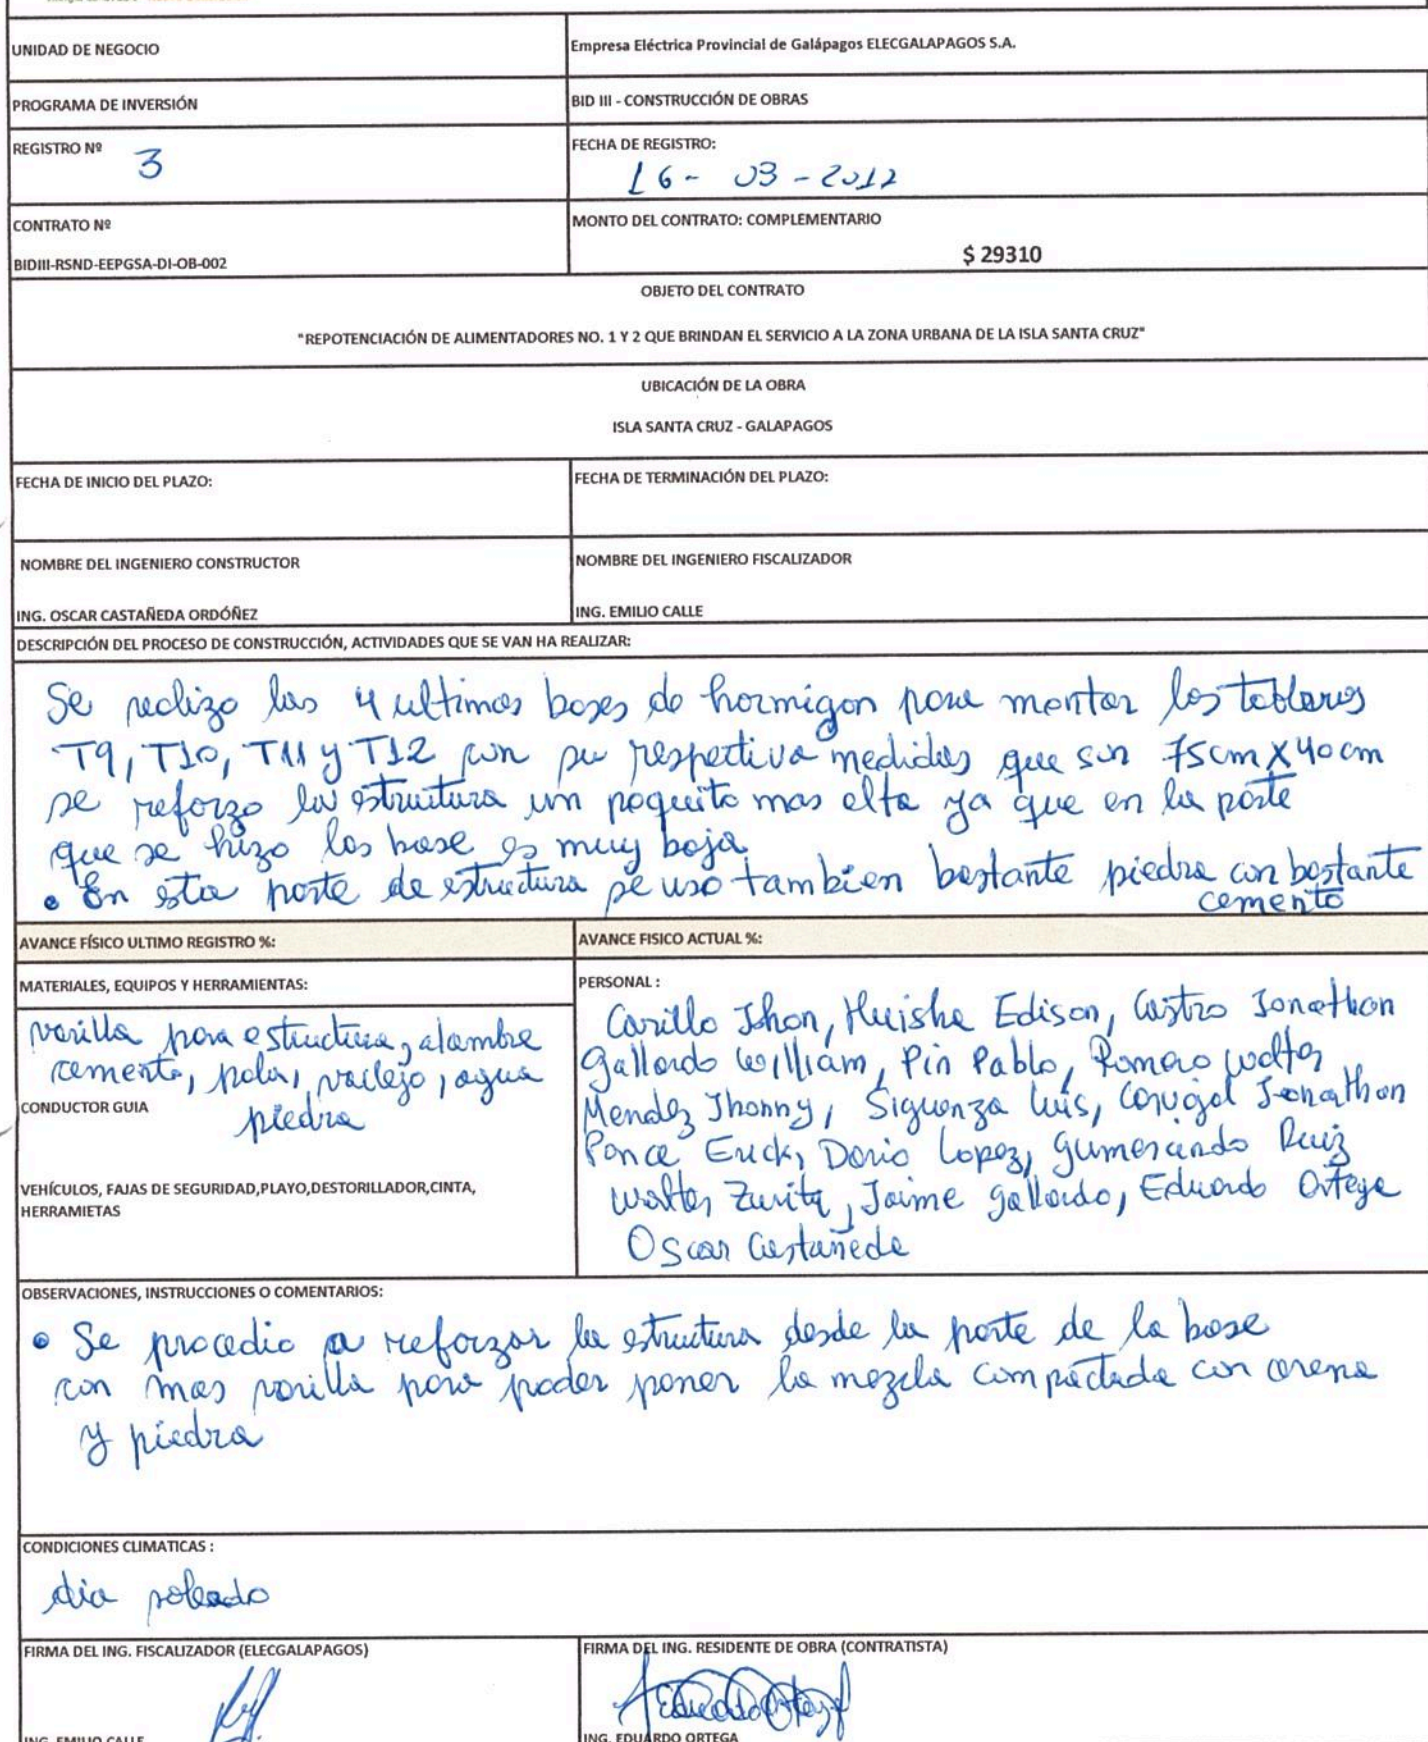 UNIDAD DE NEGOCIO
Empresa Eléctrica Provincial de Galápagos ELECGALAPAGOS S.A.
PROGRAMA DE INVERSIÓN
BID III - CONSTRUCCIÓN DE OBRAS
REGISTRO Nº 3
FECHA DE REGISTRO:
16 - 03 - 2017
CONTRATO Nº
BIDIII-RSND-EEPGSA-DI-OB-002
MONTO DEL CONTRATO: COMPLEMENTARIO
$ 29310
OBJETO DEL CONTRATO
"REPOTENCIACIÓN DE ALIMENTADORES NO. 1 Y 2 QUE BRINDAN EL SERVICIO A LA ZONA URBANA DE LA ISLA SANTA CRUZ"
UBICACIÓN DE LA OBRA
ISLA SANTA CRUZ - GALAPAGOS
FECHA DE INICIO DEL PLAZO:
FECHA DE TERMINACIÓN DEL PLAZO:
NOMBRE DEL INGENIERO CONSTRUCTOR
ING. OSCAR CASTAÑEDA ORDÓÑEZ
NOMBRE DEL INGENIERO FISCALIZADOR
ING. EMILIO CALLE
DESCRIPCIÓN DEL PROCESO DE CONSTRUCCIÓN, ACTIVIDADES QUE SE VAN HA REALIZAR:
Se realizo las 4 ultimas bases de hormigon para montar los tableros
T9, T10, T11 y T12 con su respectiva medidas que son 75cm X 40cm
se reforzo la estructura un poquito mas alta ya que en la parte
que se hizo las base es muy baja
• En esta parte de estructura se uso tambien bastante piedra con bastante
cemento
AVANCE FÍSICO ULTIMO REGISTRO %:
AVANCE FISICO ACTUAL %:
MATERIALES, EQUIPOS Y HERRAMIENTAS:
varilla para estructura, alambre
cemento, pala, vailejo, agua
CONDUCTOR GUIA
piedra
VEHÍCULOS, FAJAS DE SEGURIDAD,PLAYO,DESTORILLADOR,CINTA,
HERRAMIETAS
PERSONAL :
Carillo Jhon, Huishe Edison, Castro Jonathan
Gallardo William, Pin Pablo, Romero Walter
Mendez Jhonny, Siguenza Luis, Carvajal Jonathan
Ponce Erick, Dario Lopez, Gumercindo Ruiz
Walter Zurita, Jaime Gallardo, Eduardo Ortega
Oscar Castañeda
OBSERVACIONES, INSTRUCCIONES O COMENTARIOS:
• Se procedio a reforzar la estructura desde la parte de la base
con mas varilla para poder poner la mezcla compactada con arena
y piedra
CONDICIONES CLIMATICAS :
dia soleado
FIRMA DEL ING. FISCALIZADOR (ELECGALAPAGOS)
FIRMA DEL ING. RESIDENTE DE OBRA (CONTRATISTA)
ING. EMILIO CALLE
ING. EDUARDO ORTEGA